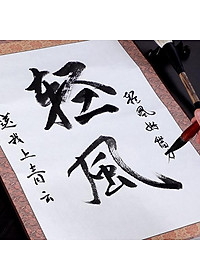 轻風
轻風如借力
送我上青云